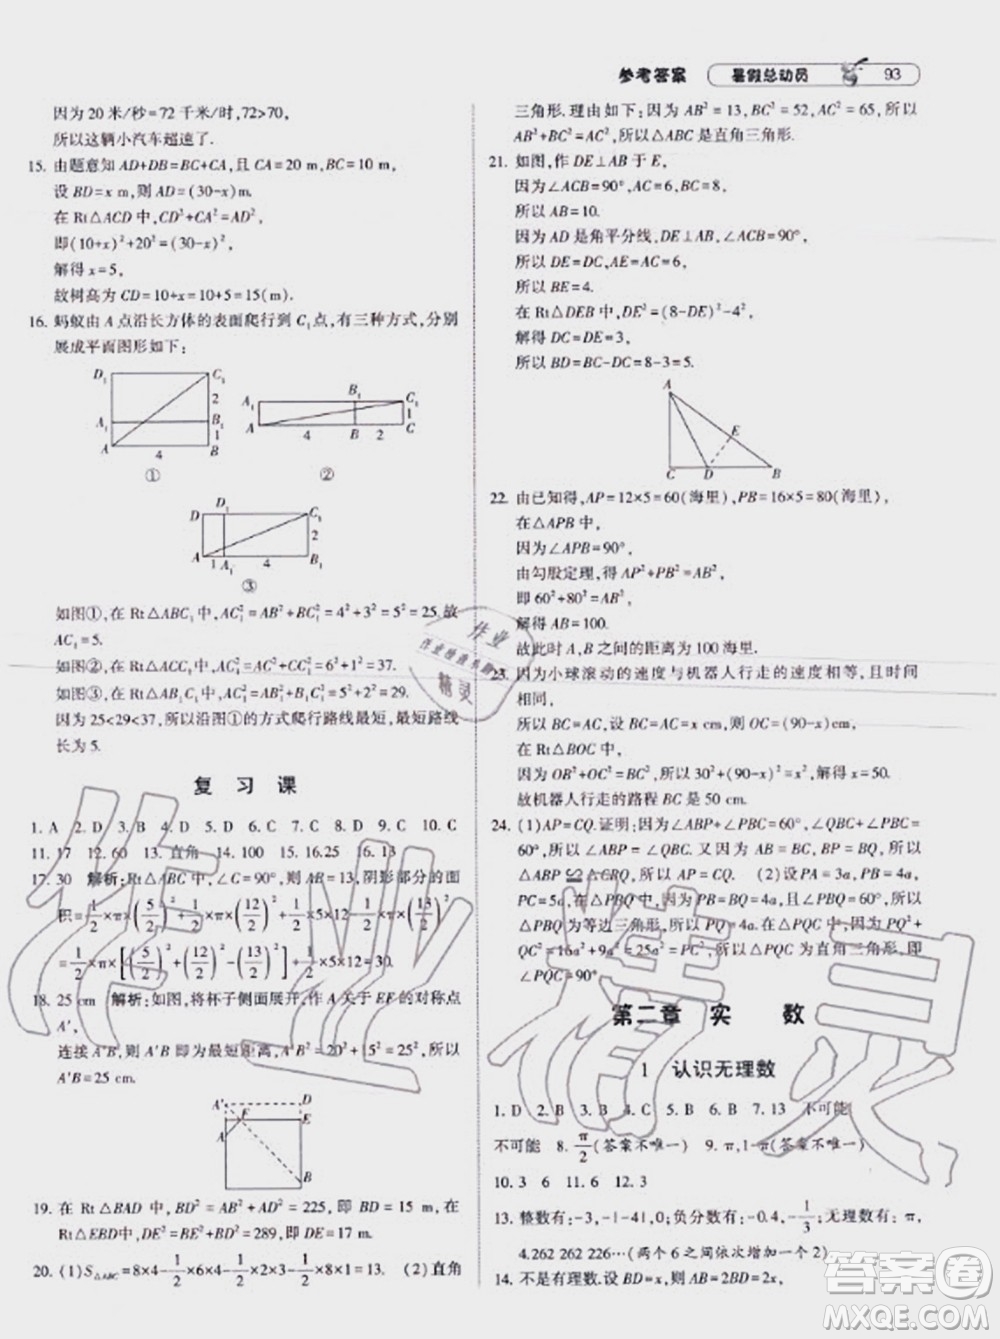 参考答案 暑假总动员 93
因为 20 米/秒=72 千米/时,72>70,
所以这辆小汽车超速了.
15. 由题意知 AD+DB=BC+CA,且 CA=20 m,BC=10 m,
设 BD=x m,则 AD=(30-x)m.
在 Rt△ACD 中,CD²+CA²=AD²,
即(10+x)²+20²=(30-x)²,
解得 x=5,
故树高为 CD=10+x=10+5=15(m).
16. 蚂蚁由 A 点沿长方体的表面爬行到 C₁点,有三种方式,分别
展成平面图形如下:
D₁ C₁ 2 A₁ B₁ 1 A 4 B
①
A₁ B₁ C₁ 1 A 4 B 2 C
②
D D₁ C₁ 2 A 1 A₁ 4 B₁
③
如图①,在 Rt△ABC₁中,AC₁²=AB²+BC₁²=4²+3²=5²=25.故
AC₁=5.
如图②,在 Rt△ACC₁中,AC₁²=AC²+CC₁²=6²+1²=37.
如图③,在 Rt△AB₁C₁中,AC₁²=AB₁²+B₁C₁²=5²+2²=29.
因为 25<29<37,所以沿图①的方式爬行路线最短,最短路线
长为 5.
复 习 课
1. A 2. D 3. D 4. D 5. D 6. C 7. C 8. D 9. C 10. C
11. 17 12. 60 13. 直角 14. 100 15. 16.25 16. 13
17. 30 解析:在 Rt△ABC 中,∠C=90°,则 AB=13,阴影部分的面
积=1/2×π×(5/2)²+1/2×π×(12/2)²+1/2×5×12-1/2×π×(13/2)²
=1/2×π×[(5/2)²+(12/2)²-(13/2)²]+1/2×5×12=30.
18. 25 cm 解析:如图,将杯子侧面展开,作 A 关于 EF 的对称点
A′,
连接 A′B,则 A′B 即为最短距离,所以
A′B=25 cm.
A′ D F E A B
19. 在 Rt△BAD 中,BD²=AB²+AD²=225,即 BD=15 m,在
Rt△EBD 中,DE²=BD²+EB²=289,即 DE=17 m.
20. (1)S△ABC=8×4-1/2×6×4-1/2×3×2-1/2×8×1=13. (2)直角
三角形.理由如下:因为 AB²=13,BC²=52,AC²=65,所以
AB²+BC²=AC²,所以△ABC 是直角三角形.
21. 如图,作 DE⊥AB 于 E,
因为∠ACB=90°,AC=6,BC=8,
所以 AB=10.
因为 AD 是角平分线,DE⊥AB,∠ACB=90°,
所以 DE=DC,AE=AC=6,
所以 BE=4.
在 Rt△DEB 中,DE²=(8-DE)²-4²,
解得 DE=3,
所以 BD=BC-DC=8-3=5.
A E C D B
22. 由已知得,AP=12×5=60(海里),PB=16×5=80(海里),
在△APB 中,
因为∠APB=90°,
由勾股定理,得 AP²+PB²=AB²,
即 60²+80²=AB²,
解得 AB=100.
故此时 A,B 之间的距离为 100 海里.
23. 因为小球滚动的速度与机器人行走的速度相等,运动时间
相同,
所以 BC=AC,设 BC=AC=x cm,则 OC=(90-x)cm.
在 Rt△BOC 中,
因为 OB²+OC²=BC²,所以 30²+(90-x)²=x²,解得 x=50.
故机器人行走的路程 BC 是 50 cm.
24. (1)AP=CQ.证明:因为∠ABP+∠PBC=60°,∠QBC+∠PBC=
60°,所以∠ABP=∠QBC.又因为 AB=BC,BP=BQ,所以
△ABP≌△CBQ,所以 AP=CQ. (2)设 PA=3a,PB=4a,
PC=5a,在△PBQ 中,因为 PB=BQ=4a,且∠PBQ=60°,所以
△PBQ 为等边三角形,所以 PQ=4a.在△PQC 中,因为 PQ²+
QC²=16a²+9a²=25a²=PC²,所以△PQC 为直角三角形,即
∠PQC=90°.
第二章 实 数
1 认识无理数
1. D 2. B 3. B 4. C 5. B 6. B 7. 13 不可能
不可能 8. π/2(答案不唯一) 9. π,1-π(答案不唯一)
10. 3 6 11. 6 12. 3
13. 整数有:-3,-|-4|,0;负分数有:-0.4,-1/3;无理数有:
4.262 262 226…(两个 6 之间依次增加一个 2)
14. 不是有理数.设 BD=x,则 AB=2BD=2x,
作业
作业检查小助手
精灵
作业精灵
答案圈
MXQE.COM